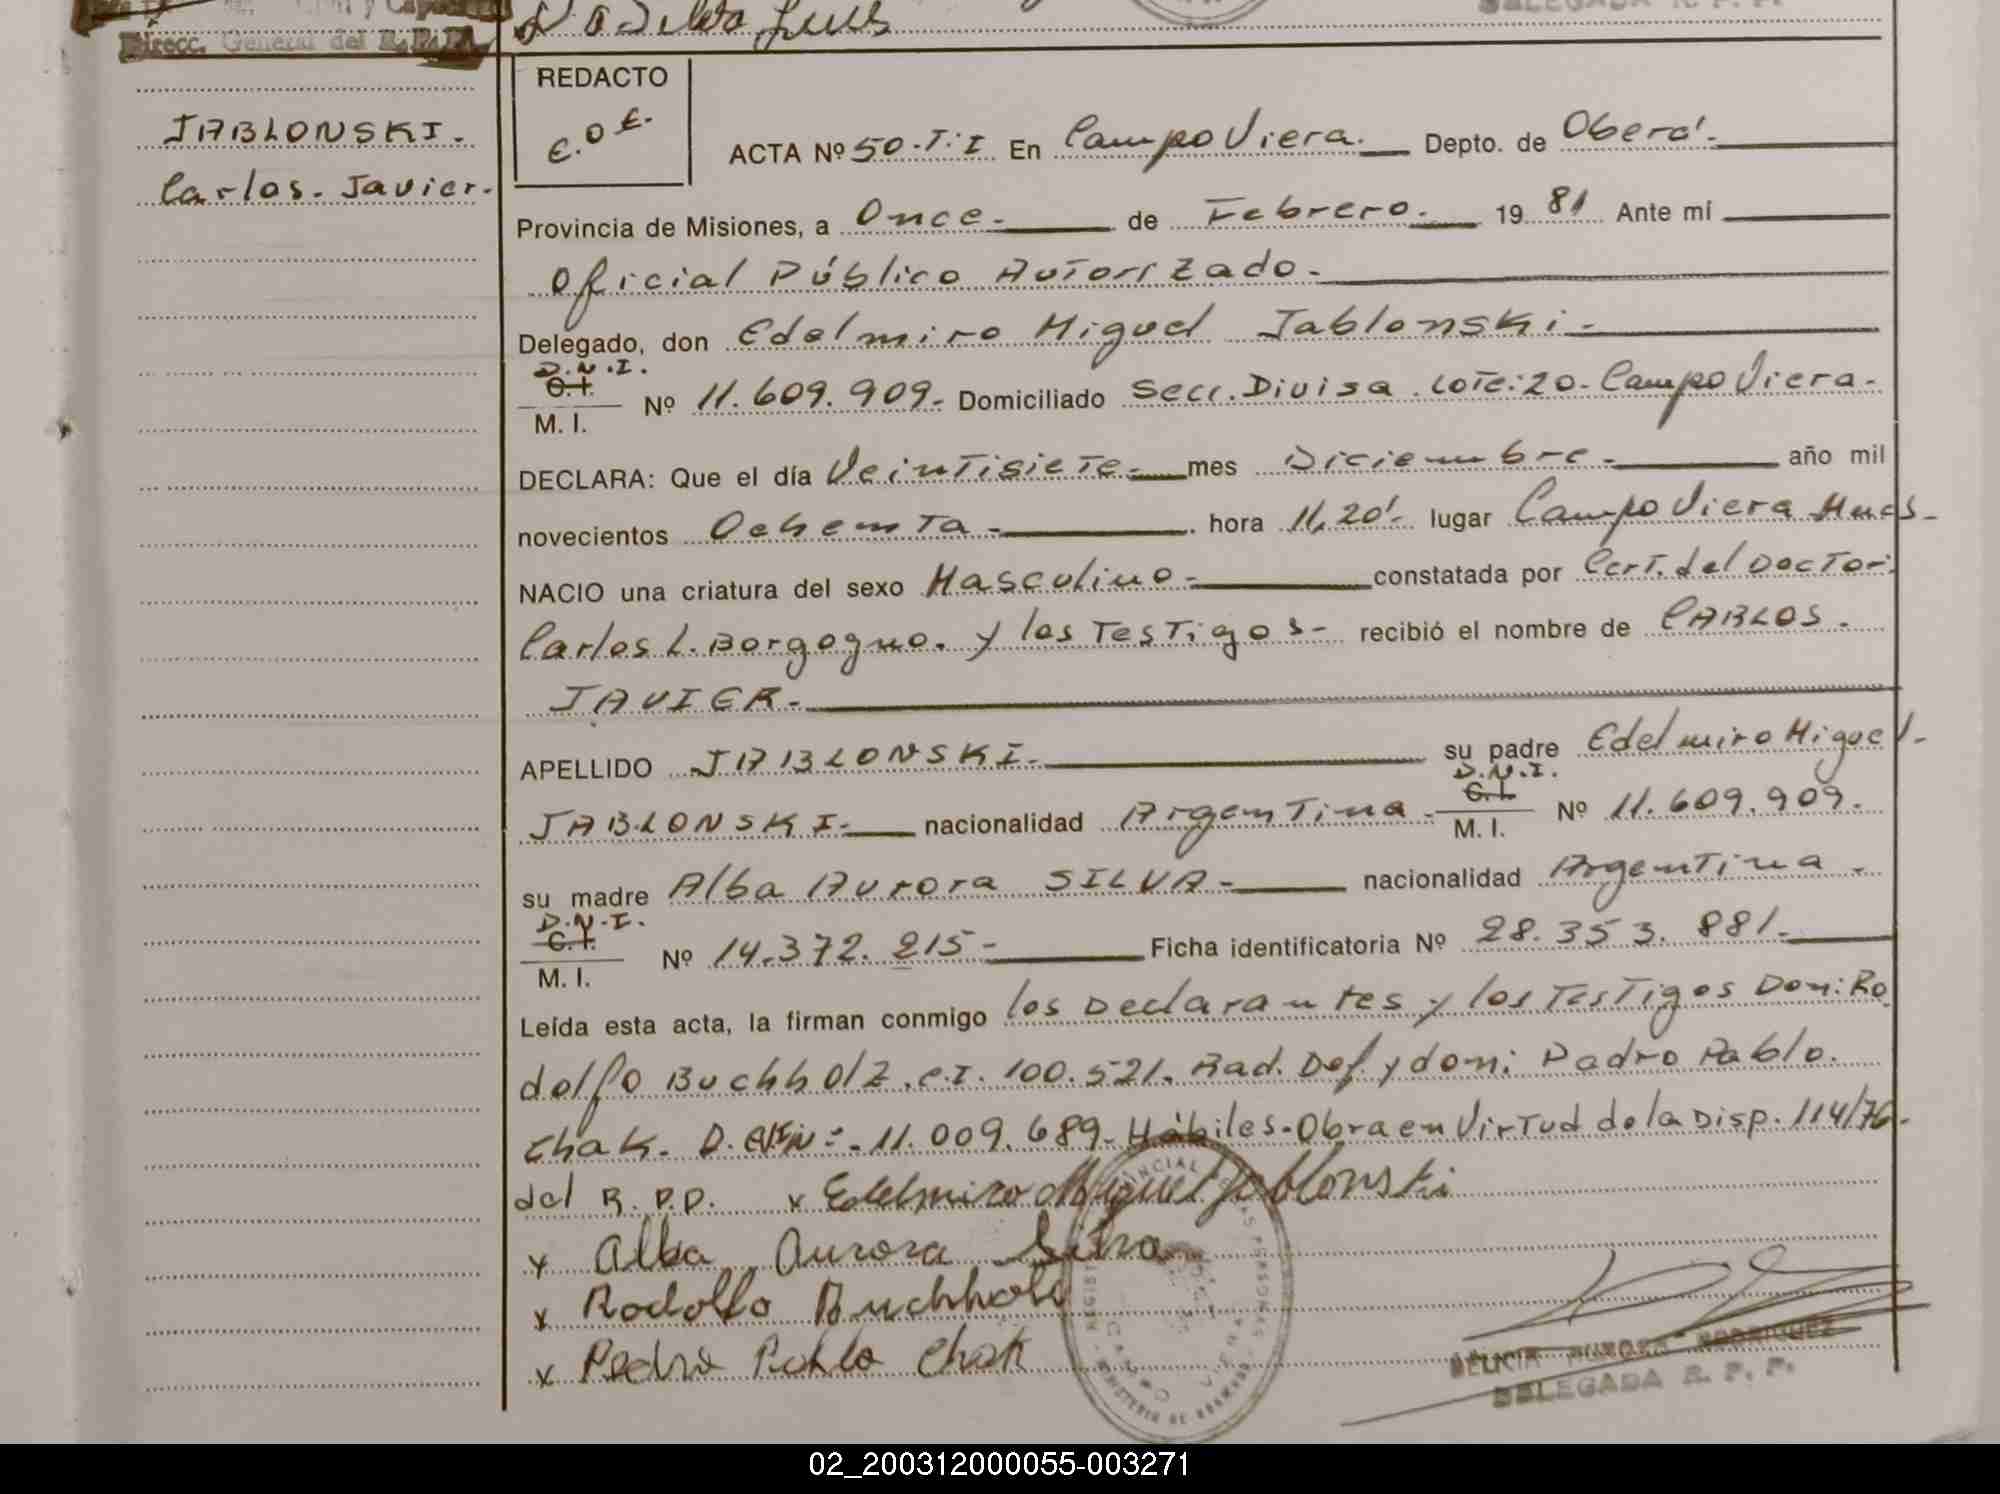 Direcc. General del R.P.P.
Da Silva Luis
REDACTO
E.O.E.
JABLONSKI.
Carlos. Javier.
ACTA Nº 50.T:I En Campo Viera. Depto. de Oberá.
Provincia de Misiones, a Once. de Febrero. 19 81 Ante mí
Oficial Público Autorizado.
Delegado, don Edelmiro Miguel Jablonski.
D.N.I.
C.I.
M. I. Nº 11.609.909. Domiciliado Secc. Divisa. Lote:20. Campo Viera.
DECLARA: Que el día Veintisiete. mes Diciembre. año mil
novecientos Ochenta. hora 11,20'. lugar Campo Viera Mnes.
NACIO una criatura del sexo Masculino. constatada por Cert. del Doctor:
Carlos L. Borgogno. y los Testigos- recibió el nombre de CARLOS.
JAVIER.
APELLIDO JABLONSKI. su padre Edelmiro Miguel.
JABLONSKI. nacionalidad Argentina. D.N.I. C.I. M. I. Nº 11.609.909.
su madre Alba Aurora SILVA. nacionalidad Argentina.
D.N.I.
C.I.
M. I. Nº 14.372.215- Ficha identificatoria Nº 28.353.881.
Leída esta acta, la firman conmigo los Declarantes y los Testigos Don: Ro
dolfo Buchholz. C.I. 100.521. Rad. Def. y don: Padro Pablo.
Chak. D. 11.009.689. Hábiles. Obra en Virtud de la Disp. 114/76.
del R.P.P. x Edelmiro Miguel Jablonski
x Alba Aurora Silva
x Rodolfo Buchholz
x Pedro Pablo Chak
AURORA RODRIGUEZ
DELEGADA R. P. P.
02_200312000055-003271